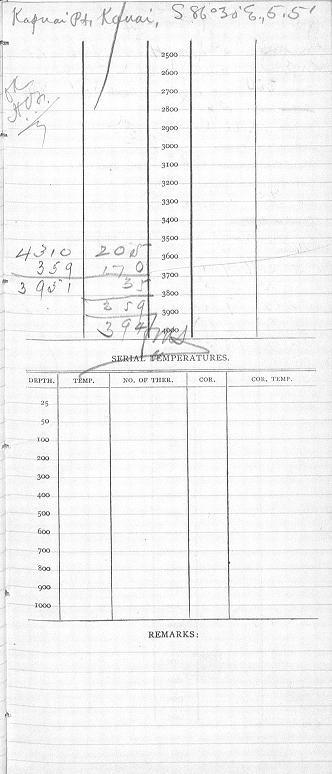 Kapuai Pt, Kauai, S 86°30'E., 5.5'
2500
2600
2700
2800
2900
3000
3100
3200
3300
3400
3500
4310 205 3600
359 170 3700
3951 35 3800
359 3900
394 4000
SERIAL TEMPERATURES.
DEPTH. TEMP. NO. OF THER. COR. COR. TEMP.
25
50
100
200
300
400
500
600
700
800
900
1000
REMARKS: